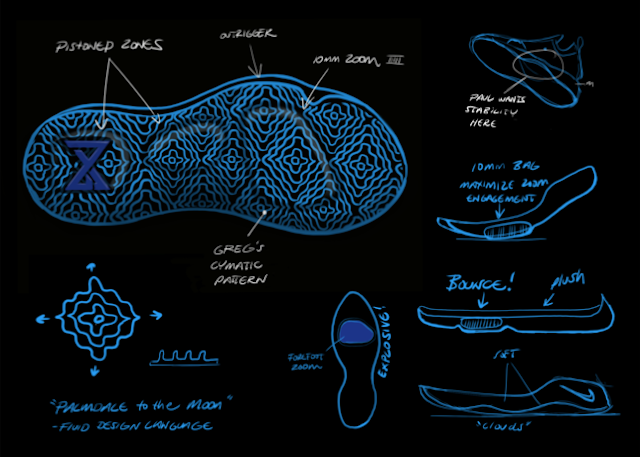 PISTONED ZONES
OUTRIGGER
10MM ZOOM IIII
PAUL WANTS
STABILITY
HERE
10MM BAG
MAXIMIZE ZOOM
ENGAGEMENT
GREG'S
CYMATIC
PATTERN
BOUNCE!
plush
FOREFOOT
ZOOM
EXPLOSIVE!
SOFT
"CLOUDS"
"PALMDALE to the MOON"
- FLUID DESIGN LANGUAGE